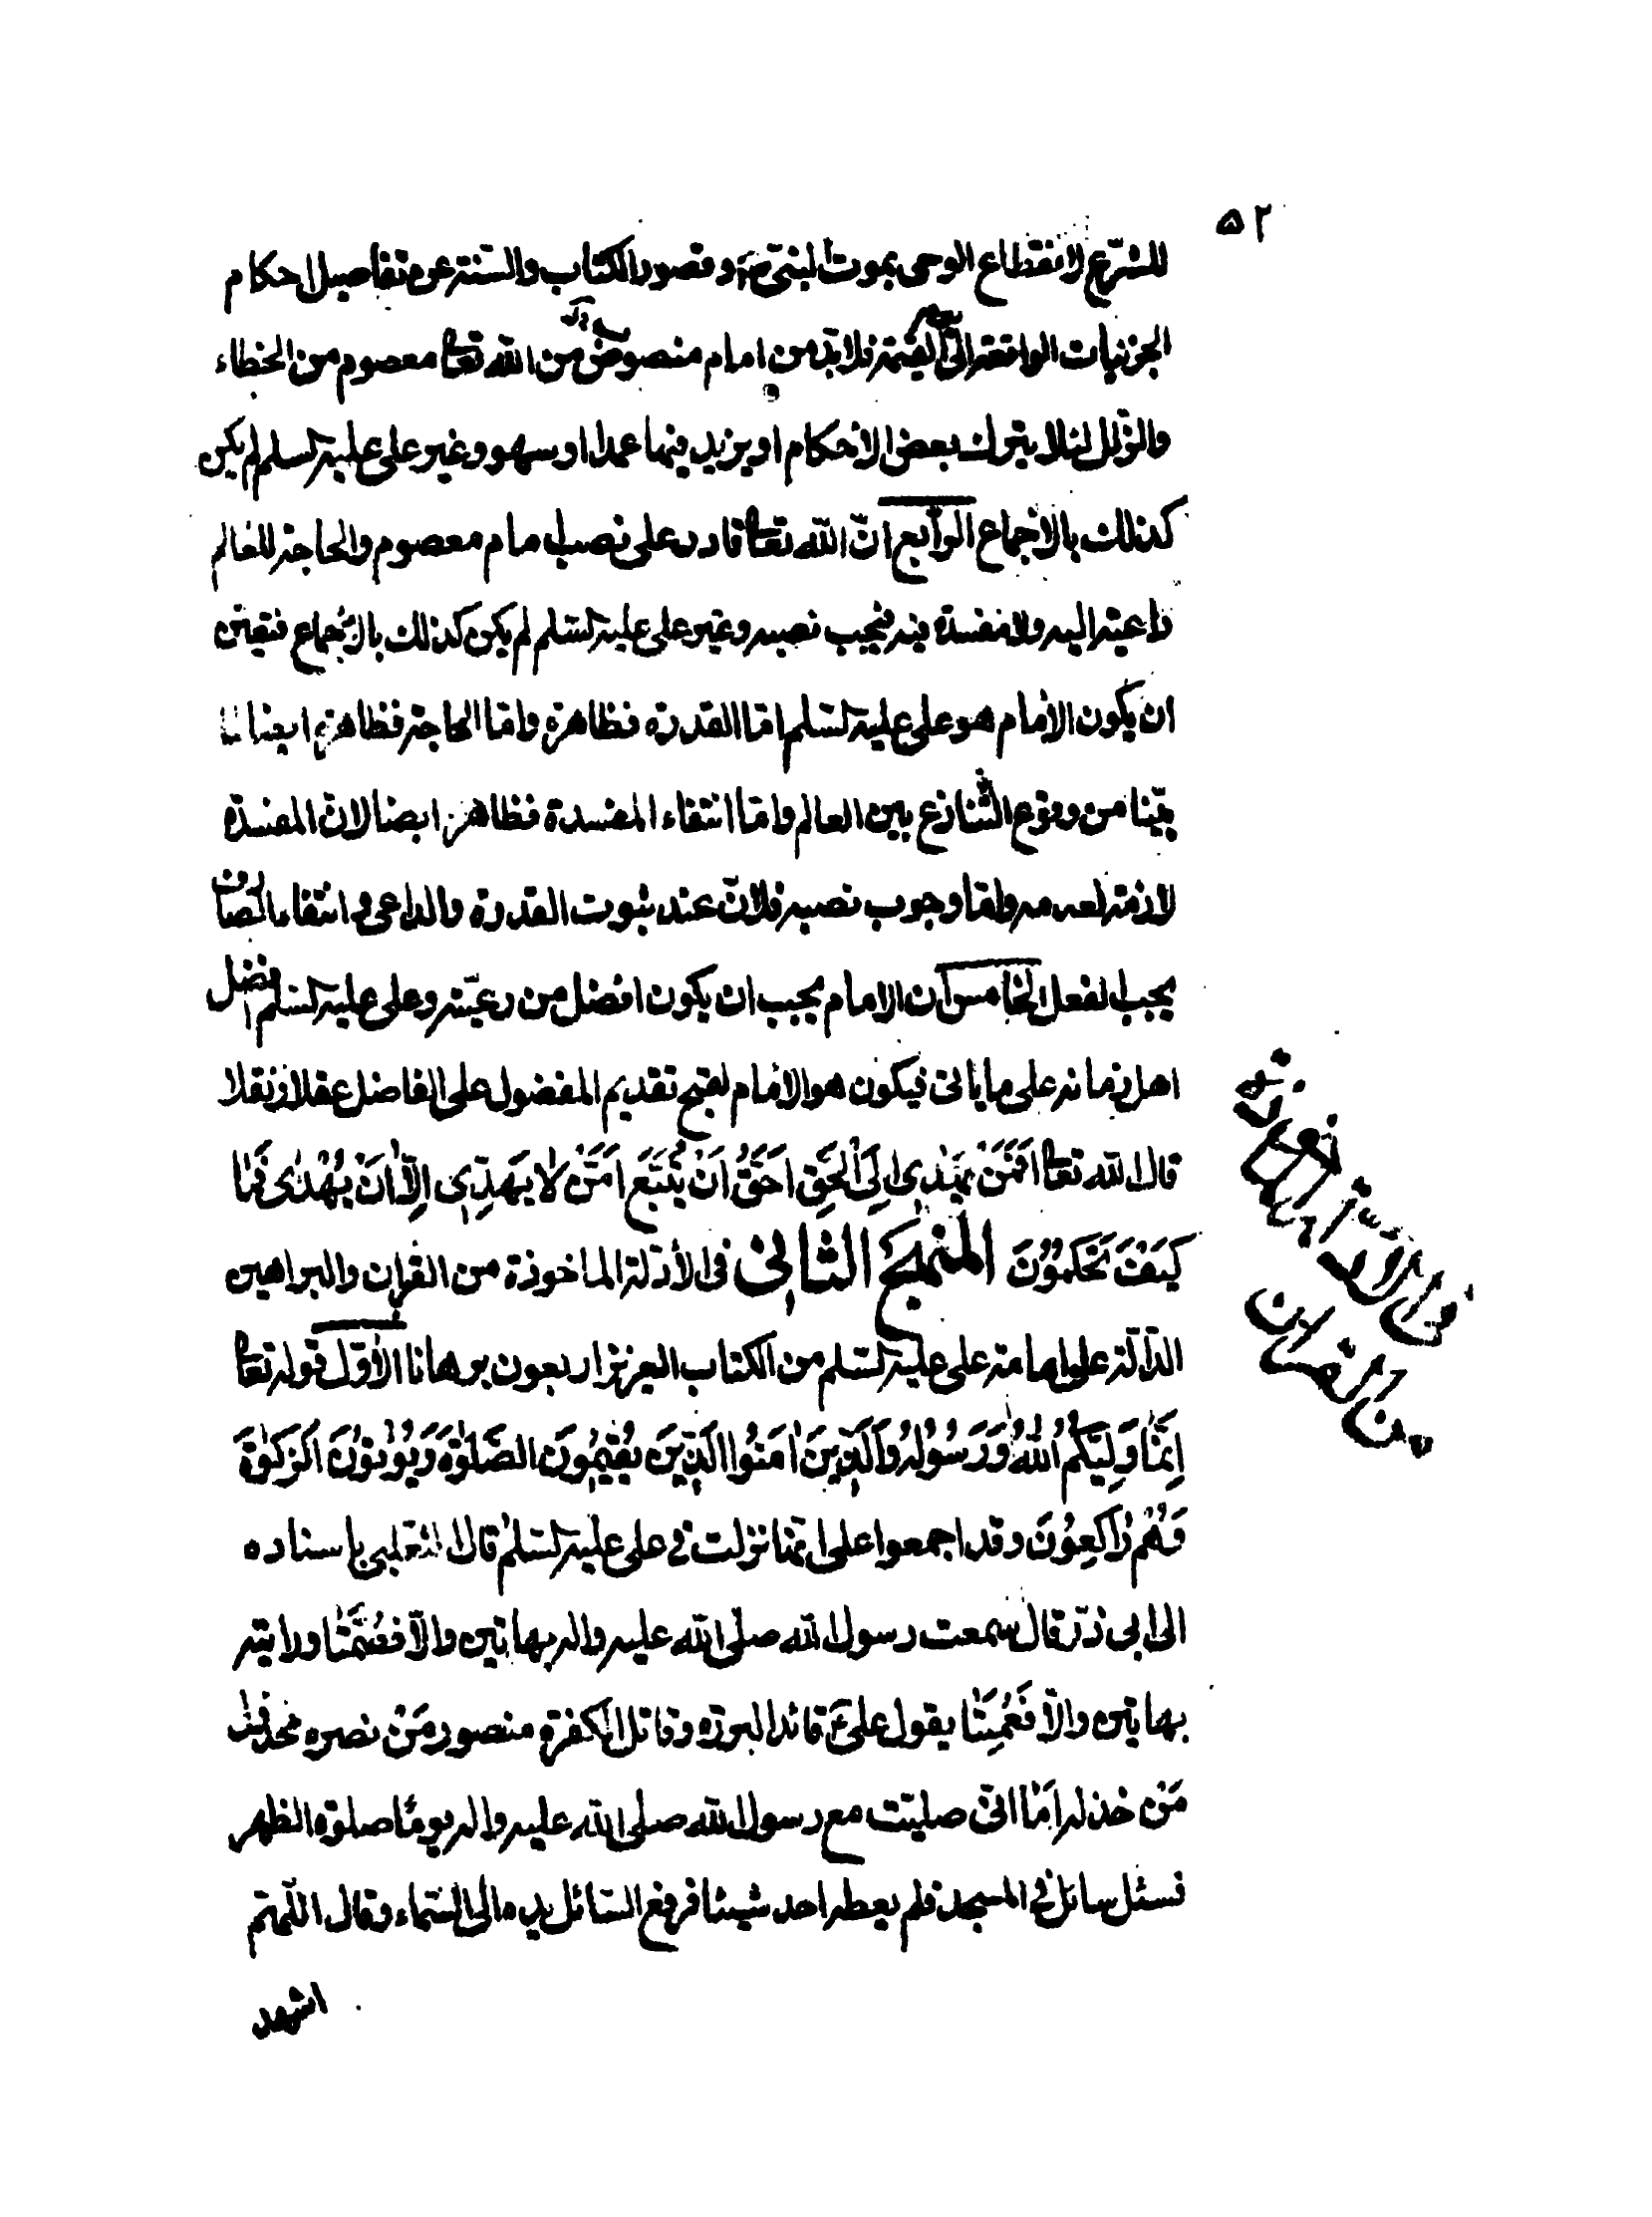 ٥٢
للشّرع لانقطاع الوحى بموت النبىّ صۤ وقصور الكتاب والسّنة عن تفاصيل الاحكام
الجزئيات الواقعة الى يوم القيمة فلابدّ من امام منصوص من الله تعالى معصوم من الخطاء
والزّلل لئلا يترك بعض الاحكام او يزيد فيها عمدا او سهو وغير على عليه السلم لم يكن
كذلك بالاجماع الرّابع انّ الله تعالى قادر على نصب امام معصوم والحاجة للعالم
داعية اليه ولا مفسدة فيه فيجب نصبه وغير على عليه السّلم لم يكن كذلك بالاجماع فتعين
ان يكون الامام هو على عليه السّلم امّا القدرة فظاهرة وامّا الحاجة فظاهرة ايضا لما
بيّنا من وقوع التّنازع بين العالم وامّا انتفاء المفسدة فظاهر ايضا لانّ المفسدة
لازمة لعدمه وامّا وجوب نصبه فلانّ عند ثبوت القدرة والداعى وانتفاء الصارف
يجب الفعل الخامس ان الامام يجب ان يكون افضل من رعيّته وعلى عليه السّلم افضل
اهل زمانه على ما ياتى فيكون هو الامام لقبح تقديم المفضول على الفاضل عقلا ونقلا
قال الله تعالى اَفَمَنْ يَهْدِى اِلَى الْحَقِّ اَحَقُّ اَنْ يُتَّبَعَ اَمَّنْ لا يَهِدِّى اِلّا اَنْ يُهْدٰى فَمٰا
كَيْفَ تَحْكُمُوْنَ المنهج الثانى فى الأدلة الماخوذة من القران والبراهين
الدّالّة على امامة على عليه السّلم من الكتاب العزيز اربعون برهانا الاوّل قوله تعالى
اِنَّمٰا وَلِيّكُمُ اللهُ وَرَسُوْلُهُ وَالَّذِيْنَ اٰمَنُوا الَّذِيْنَ يُقِيْمُوْنَ الصَّلٰوةَ وَيُؤْتُوْنَ الزَّكٰوةَ
وَهُمْ رٰاكِعُوْنَ وقد اجمعوا على انّها نزلت فى على عليه السّلم قال الثعلبى باسناده
الى ابى ذرّ قال سمعت رسول الله صلّى الله عليه واله بهاتين والّا فصُمَّتٰا ورايته
بهاتين والّا فَعُمِيَتٰا يقول علىّ عۤ قائد البررة وقاتل الكفرة منصور مَنْ نصره مخذول
مَنْ خذله اَمٰا انّى صلّيت مع رسول الله صلى الله عليه واله يومًا صلوة الظهر
فسئل سائل فى المسجد فلم يعطه احد شيئا فرفع السّائل يده الى السّماء وقال اللّهمّ
اشهد
فى الادلّة
من القران